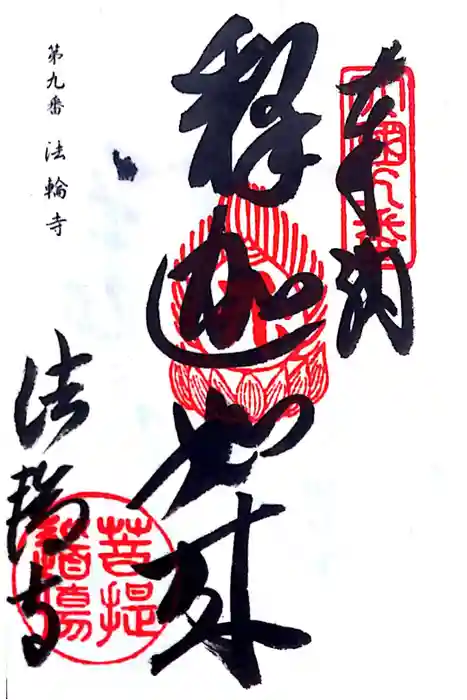 奉納
四国九番
釈迦如来
第九番 法輪寺
法輪寺
菩提
道場